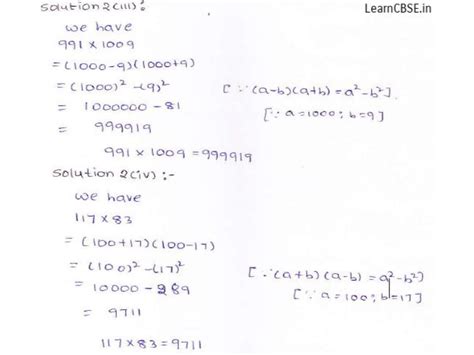 LearnCBSE.in
Solution 2(iii):
we have
991 × 1009
= (1000-9)(1000+9)
= (1000)² - (9)² [∵ (a-b)(a+b) = a²-b²]
= 1000000 - 81 [∵ a=1000; b=9]
= 999919
991 × 1009 = 999919
Solution 2(iv) :-
we have
117 × 83
= (100+17)(100-17)
= (100)² - (17)² [∵ (a+b)(a-b) = a²-b²]
= 10000 - 289 [∵ a=100; b=17]
= 9711
117 × 83 = 9711